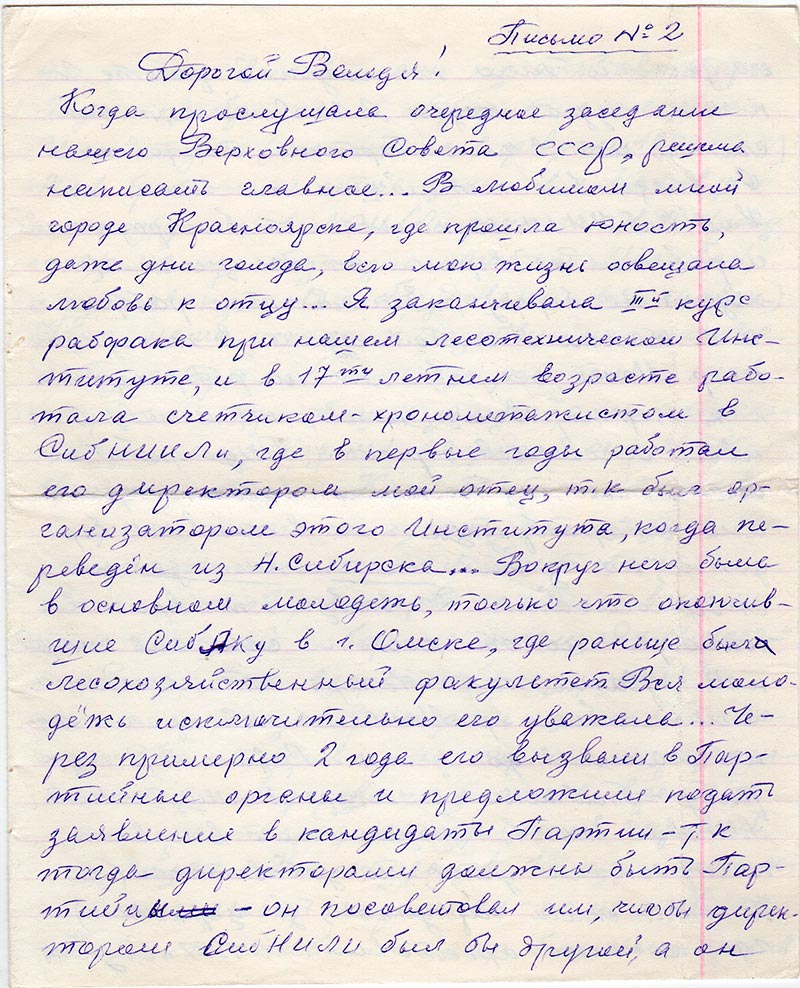 Письмо № 2
Дорогой Володя!
Когда прослушала очередное заседание
нашего Верховного Совета СССР, решила
написать главное... В любимом мной
городе Красноярске, где прошла юность,
даже дни голода, всю мою жизнь освещала
любовь к отцу... Я заканчивала III й курс
рабфака при нашем лесотехническом Инс-
титуте, и в 17 ти летнем возрасте рабо-
тала счетчиком-хронометажистом в
СибНИИЛи, где в первые годы работал
его директором мой отец, т.к был ор-
ганизатором этого Института, когда пе-
реведён из Н.Сибирска... Вокруг него была
в основном молодежь, только что окончив-
шие СибАку в г. Омске, где раньше был
лесохозяйственный факультет Вся моло-
дёжь исключительно его уважала... Че-
рез примерно 2 года его вызвали в Пар-
тийные органы и предложили подать
заявление в кандидаты Партии - т.к
тогда директорами должны быть Пар-
тийными - он посоветовал им, чтобы дирек-
тором СибНИЛи был бы другой, а он